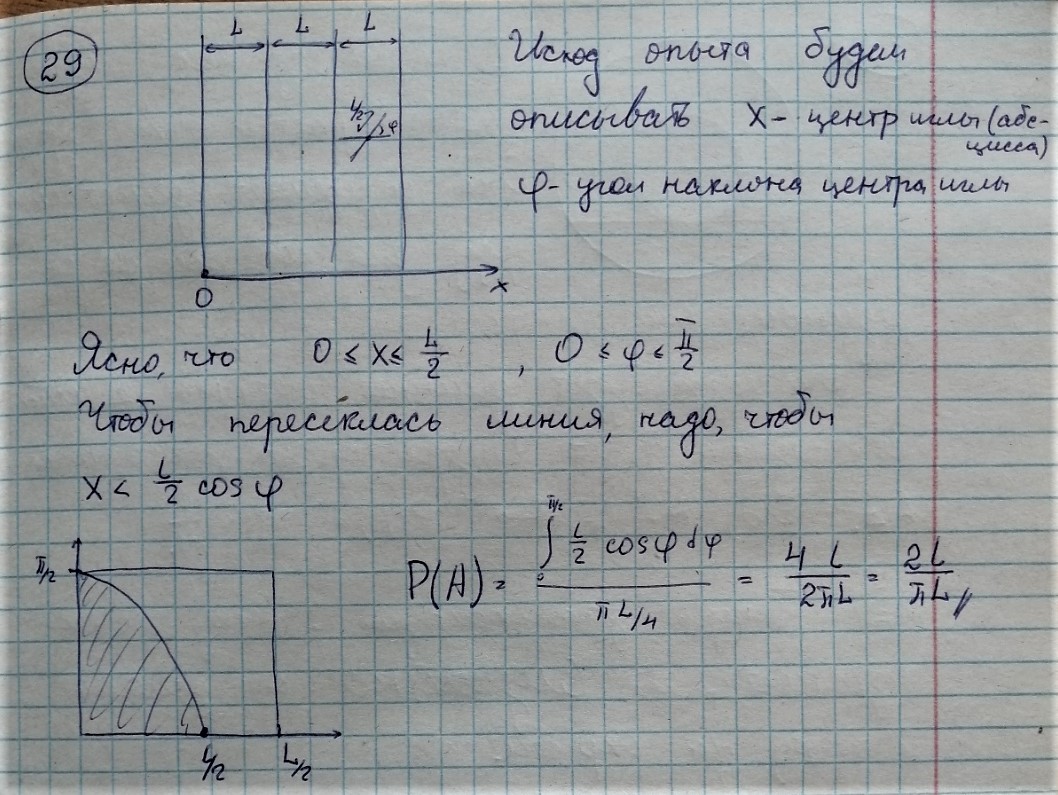 29
L L L
Исход опыта будем
описывать X - центр иглы (абс-
цисса)
φ - угол наклона центра иглы
L/2 φ
0 x
Ясно, что 0 ≤ x ≤ L/2 , 0 ≤ φ ≤ π/2
Чтобы пересеклась линия, надо, чтобы
x < L/2 cos φ
π/2
P(A) = ∫₀^{π/2} L/2 cos φ dφ / (πL/4) = 4L/2πL = 2L/πL
L/2 L/2